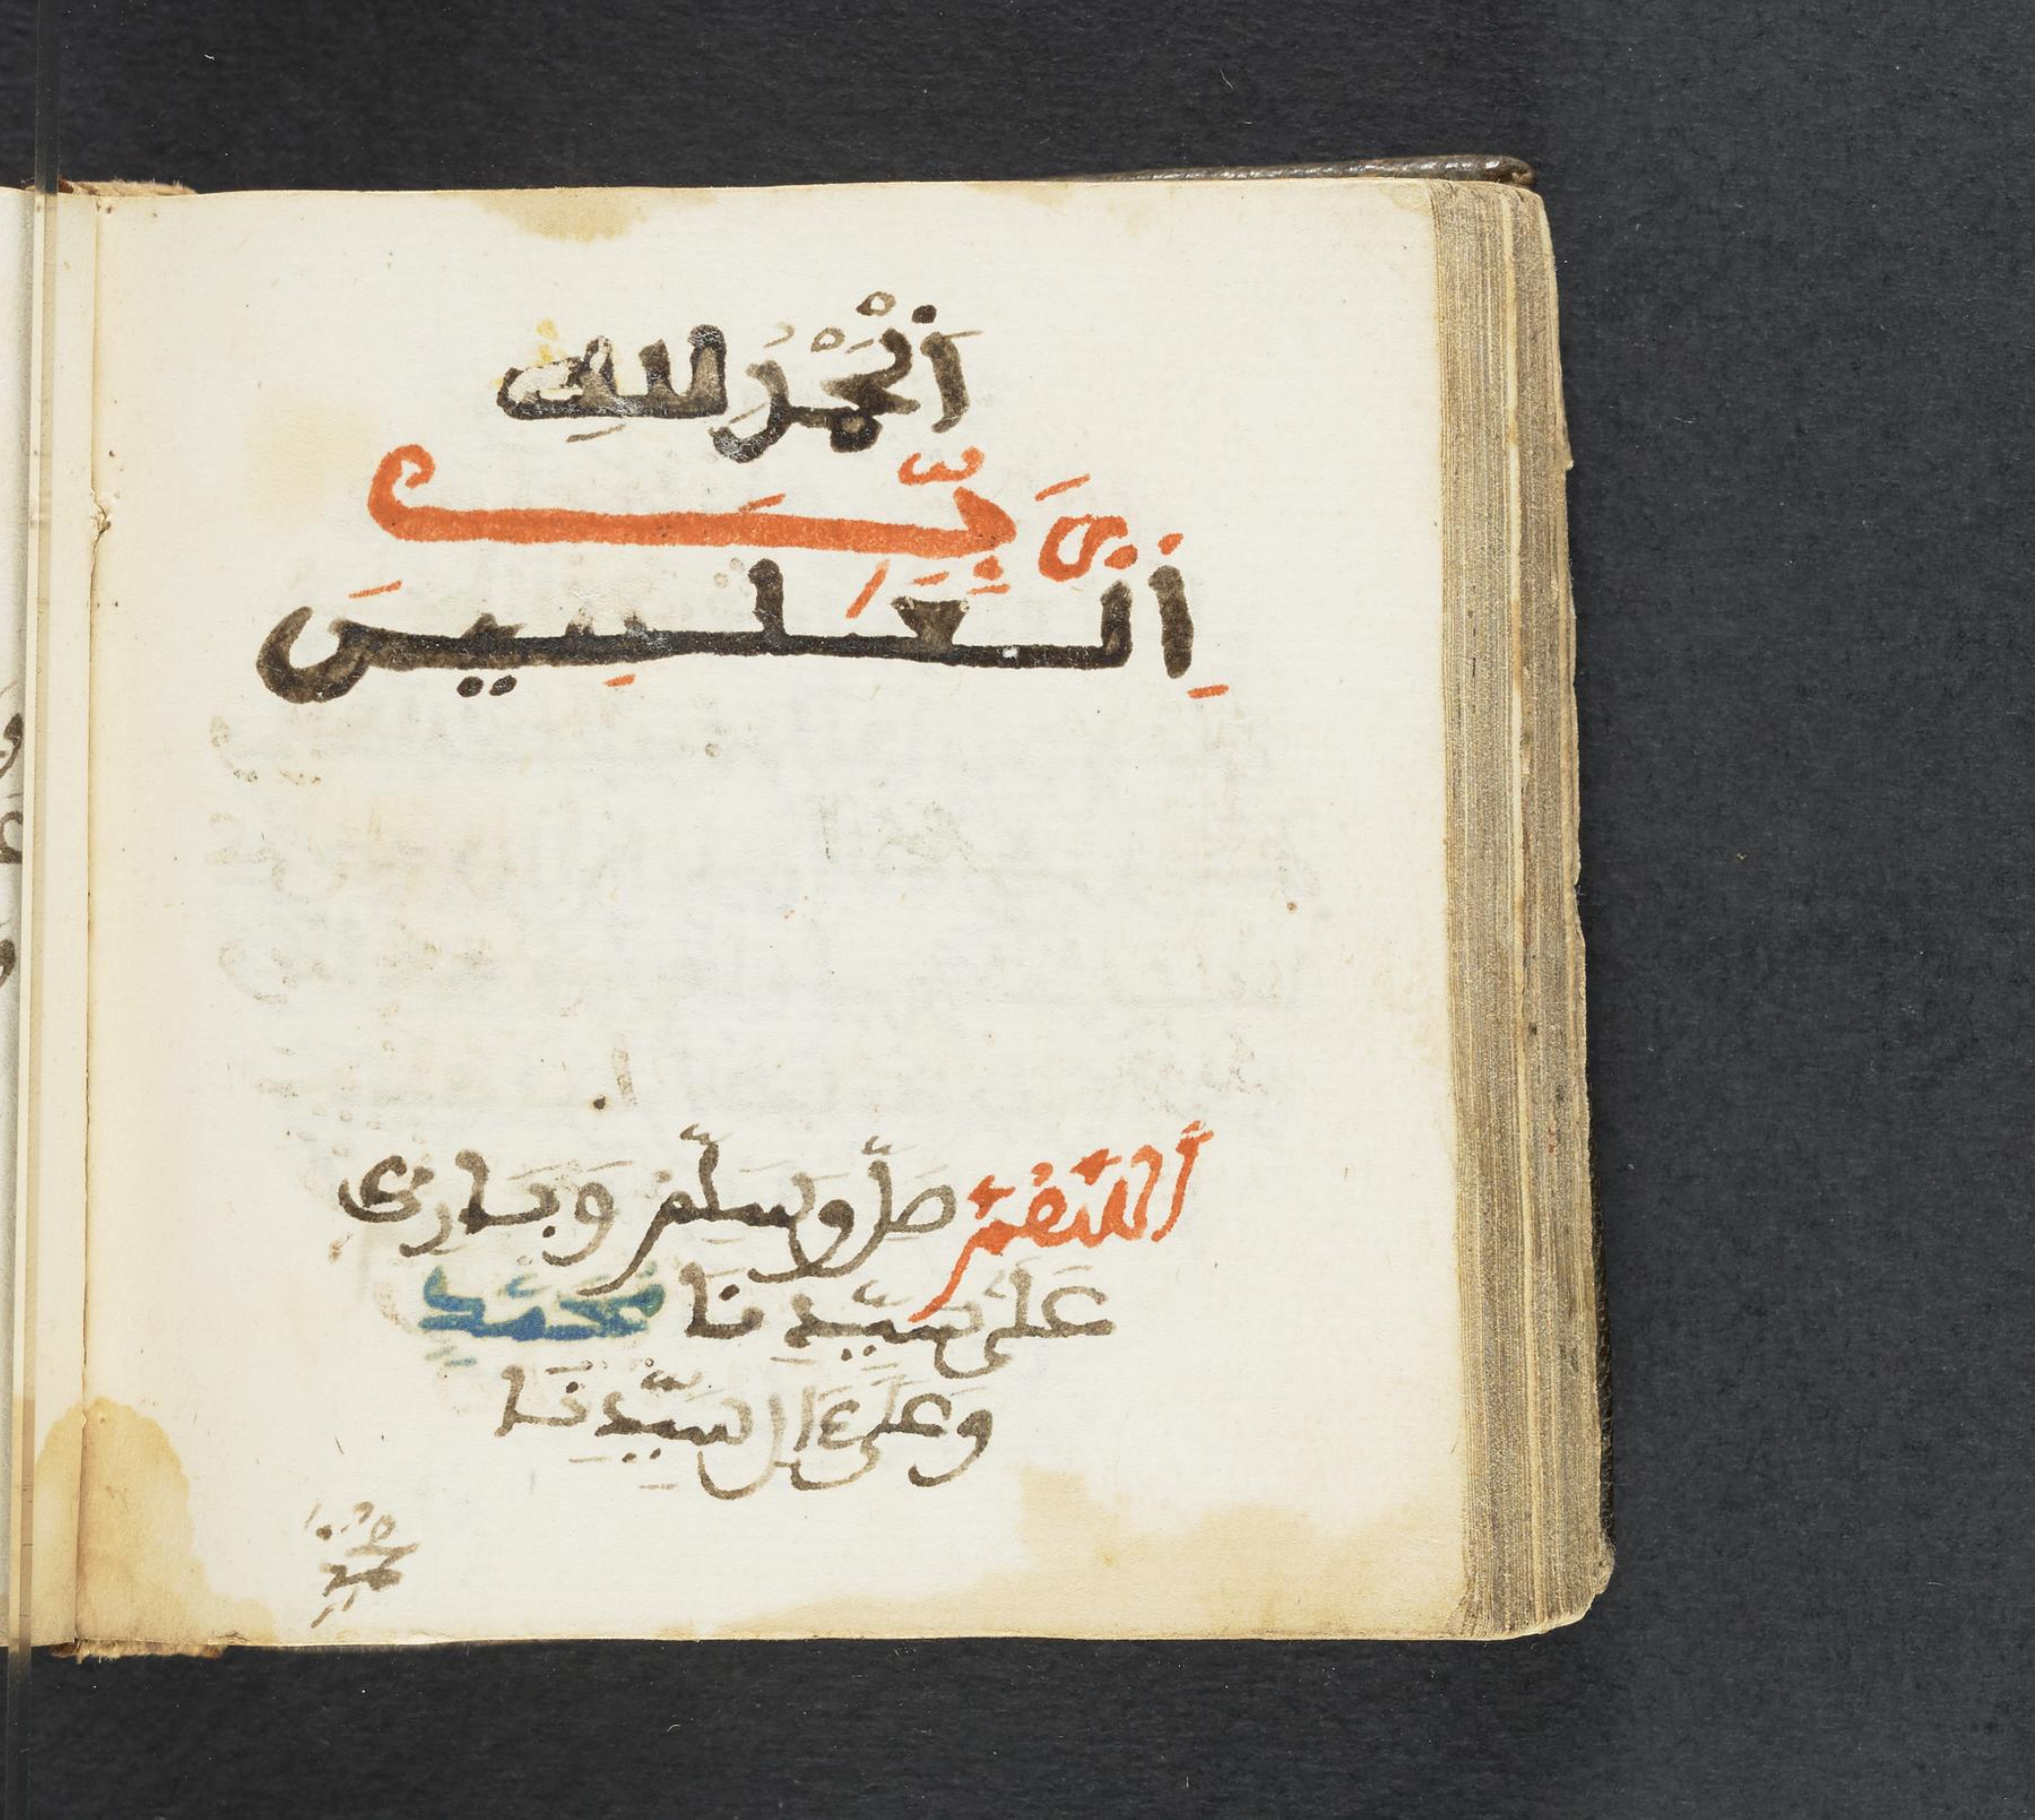 اَلْحَمْدُ لِلهِ
رَبِّ
اِ۬لْعَٰلَمِينَ
اَللَّهُمَّ صَلِّ وَسَلِّمْ وَبَارِكْ
عَلَىٰ سَيِّدِنَا مُحَمَّدٍ
وَعَلَىٰ ءَالِ سَيِّدِنَا